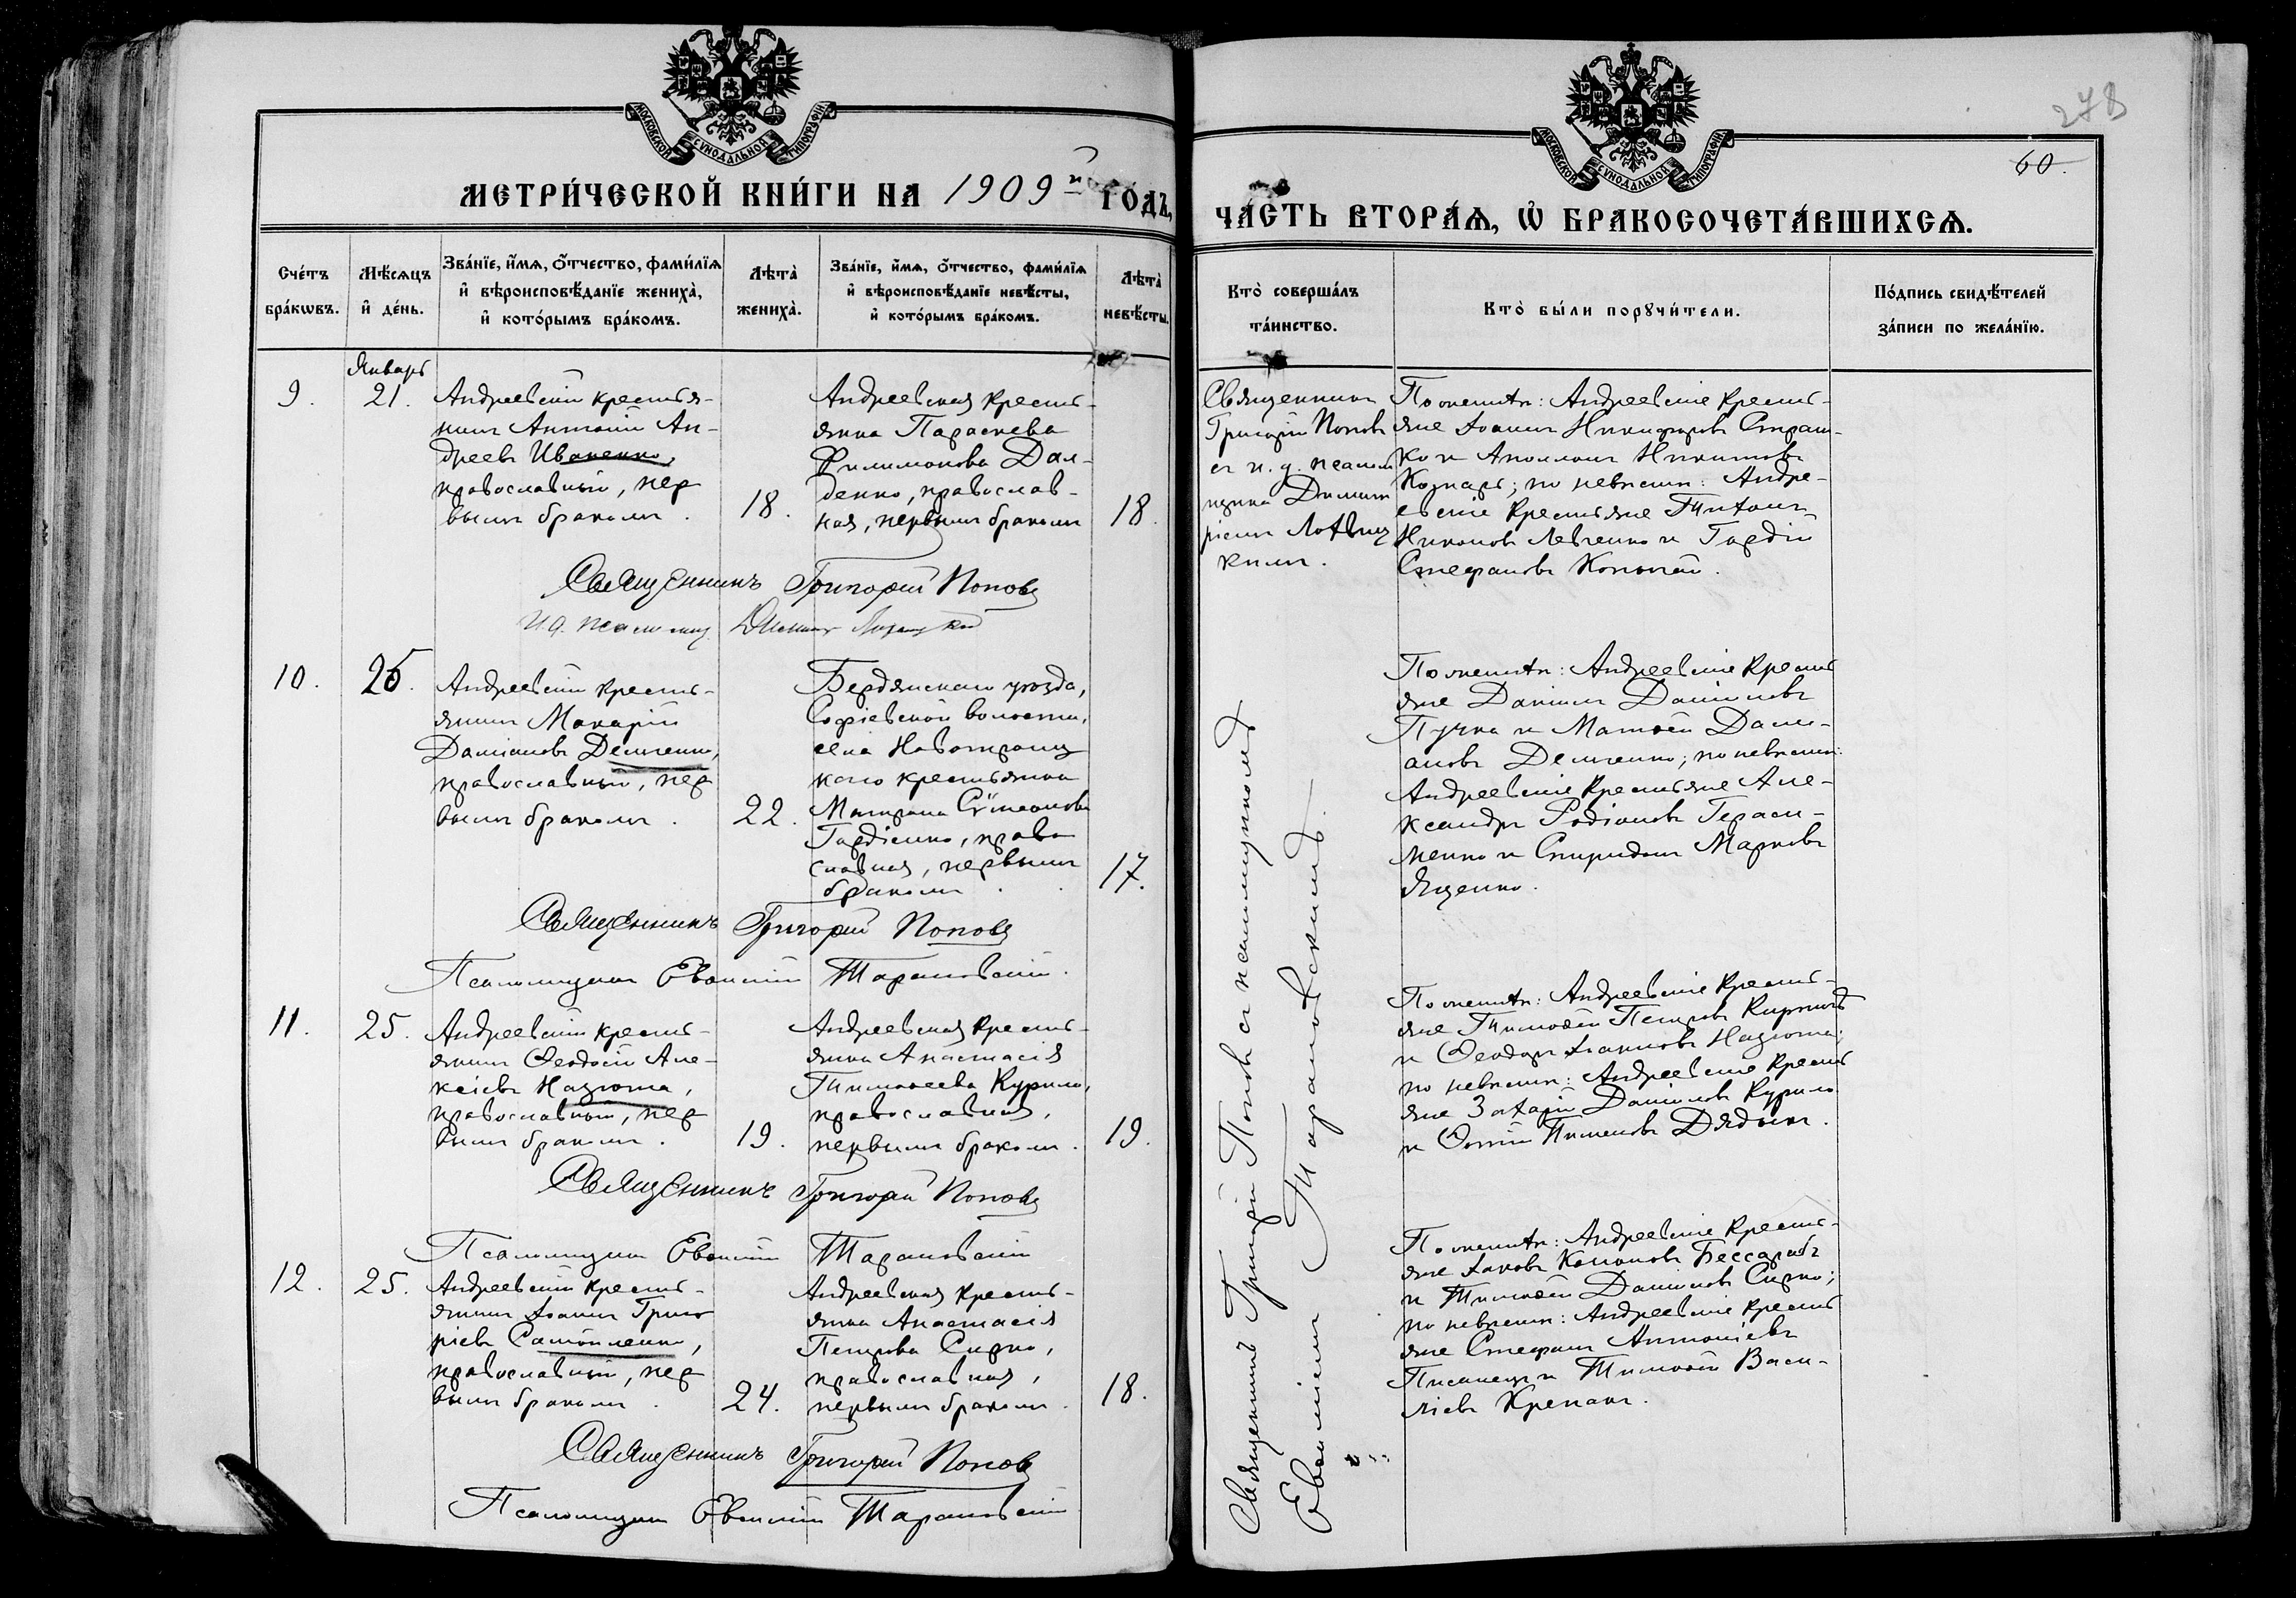 МОСКОВСКОЙ СУНОДАЛЬНОЙ ТИПОГРАФІИ
МЕТРИ́ЧЕСКОЙ КНИ́ГИ НА 1909й ГО́ДЪ,
Сче́тъ бра́кѡвъ.
Мѣ́сяцъ и҆ де́нь.
Зва́нїе, и҆́мѧ, ѻ҆́тчество, фами́лїѧ
и҆ вѣроисповѣ́данїе жениха̀,
и҆ кото́рымъ бра́комъ.
Лѣта̀ жениха̀.
Зва́нїе, и҆́мѧ, ѻ҆́тчество, фами́лїѧ
и҆ вѣроисповѣ́данїе невѣ́сты,
и҆ кото́рымъ бра́комъ.
Лѣта̀ невѣ́сты.
Январь
9.
21.
Андреевскій крестья-
нинъ Антоній Ан-
дреевъ Иваненко,
православный, пер
вымъ бракомъ.
18.
Андреевская кресть-
янка Параскева
Филимонова
денко, православ-
ная, первымъ бракомъ
18.
Священникъ Григорій Поповъ
И.д. псаломщ. Димитр
10.
26.
Андреевскій кресть-
янинъ Макарій
Даміановъ Демченко,
православный, пер
вымъ бракомъ.
22.
Бердянскаго уѣзда,
Софіевской волости,
села Новотроиц
каго крестьянка
Матрона Сѵмеонова
Гордіенко, право
славная, первымъ
бракомъ.
17.
Священникъ Григорій Поповъ
Псаломщикъ Евѳимій Тарановскій.
11.
25.
Андреевскій кресть-
янинъ Ѳеодосій Але-
ксіевъ Нагюта,
православный, пер
вымъ бракомъ.
19.
Андреевская кресть-
янка Анастасія
Тимоѳеева Курило,
православная,
первымъ бракомъ.
19.
Священникъ Григорій Поповъ
Псаломщикъ Евѳимій Тарановскій
12.
25.
Андреевскій кресть-
янинъ Іоаннъ Григо
ріевъ Самойленко,
православный, пер
вымъ бракомъ.
24.
Андреевская кресть-
янка Анастасія
Петрова Сирко,
православная,
первымъ бракомъ.
18.
Священникъ Григорій Поповъ
Псаломщикъ Евѳимій Тарановскій
278
60.
МОСКОВСКОЙ СУНОДАЛЬНОЙ ТИПОГРАФІИ
ЧА́СТЬ ВТОРА́Ѧ, Ѡ҆ БРАКОСОЧЕТА́ВШИХСѦ.
Кто̀ соверша́лъ
та́инство.
Кто̀ бы́ли порꙋчи́тели.
По́дпись свидѣ́телей
за́писи по жела́нїю.
Священникъ
Григорій Поповъ
съ и. д. псалом
щика Димит
ріемъ
кимъ.
По женихѣ: Андреевскіе кресть-
яне Іоаннъ Никифоровъ Страш-
ко и Аполлонъ Никитовъ
по невѣстѣ: Андре-
евскіе крестьяне Тихонъ
Никоновъ Левченко и Гордій
Стефановъ Копытъ.
По женихѣ: Андреевскіе кресть
яне Даніилъ Даніиловъ
Пучка и Матѳей Дамі-
ановъ Демченко; по невѣстѣ:
Андреевскіе крестьяне Але-
ксандръ Родіоновъ Гераси-
менко и Спиридонъ Марковъ
Яценко.
Священникъ Григорій Поповъ съ псаломщикомъ
Евѳиміемъ Тарановскимъ.
По женихѣ: Андреевскіе кресть-
яне Тимоѳей Петровъ
и Ѳеодоръ Іоанновъ Нагюта;
по невѣстѣ: Андреевскіе кресть
яне Захарій Даніиловъ Курило
и Пименовъ
По женихѣ: Андреевскіе кресть-
яне Іаковъ Кононовъ Бессарабъ
и Тимоѳей Даніиловъ Сирко;
по невѣстѣ: Андреевскіе кресть
яне Стефанъ Антоніевъ
Писанецъ и Тимоѳей Васи-
ліевъ Крепакъ.